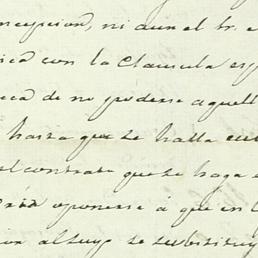 ncepcion, ni aun el Sr. e
con la Clausula esp
de no poderse aquell
hasta que se halla
el contrato que se haga
oponerse á que en l
al suyo se substituy